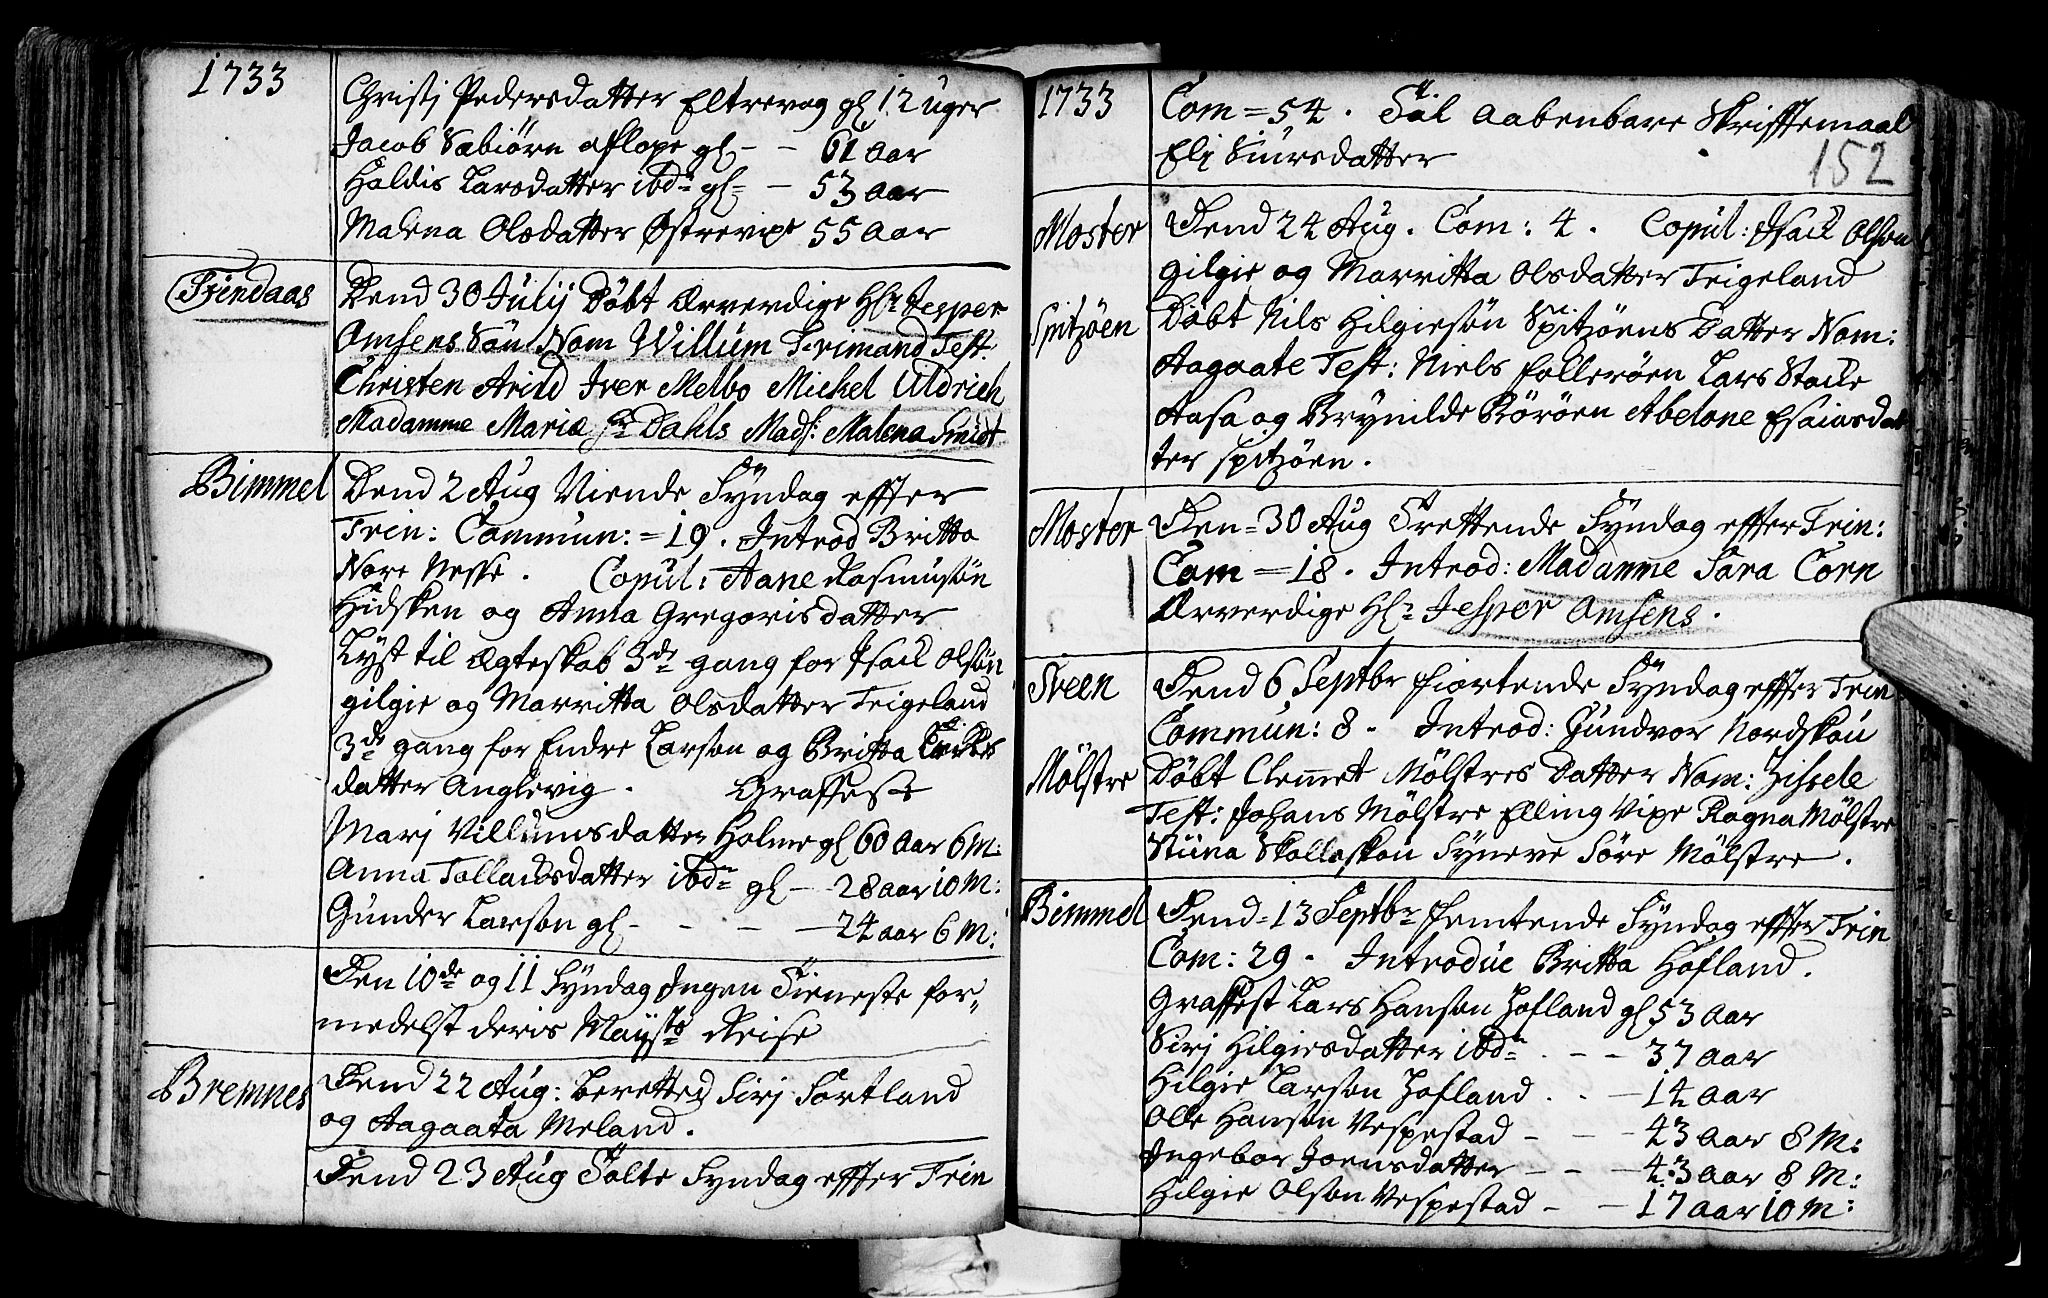 1733
Christj Pedersdatter Eltrevog gl 12 Uger
Jacob Sæbiörn afløpe gl - - 61 Aar
Haldis Larsdatter ibd gl - - 53 Aar
Malena Olsdatter Østrevixe 55 Aar
Fiindaas
Dend 30 Julij Döbt Ærverdige Hl Jesper
Amsens Sön Nom Willum Ferimand Test.
Christen Arild Iver Melbo Michel Uldrich
Madamme Maria Dahls Mads: Malena Smidt
Bimmel
Dend 2 Aug Niende Syndag effter
Trin: Commun: = 19. Introd Britta
Nore Nesse. Copul: Aane Rasmusön
Hidsken og Anna Gregorisdatter
Lyst til Ægteskab 3de gang for Isach Olsön
gilgie og Marritta Olsdatter Teigeland
3de gang for Endre Larson og Britta
datter Anglevig. Graffest
Marj Villumsdatter Holme gl 60 Aar 6 M:
Anna Tollachsdatter ibd gl - 28 aar 10 M:
Gunder Larson gl - - - 24 aar 6 M:
Den 10de og 11 Syndag Ingen Tieneste for-
medelst deris Mayts Reise
Bremnes
Dend 22 Aug: beretted Sirj Sortland
og Aagaata Meland.
Dend 23 Aug Tolte Syndag effter Trin
1733
Com = 54. aabenbare Skrifftemaal
Elj Siursdatter
152
Moster
Dend 24 Aug. Com: 4. Copul: Isach Olson
gilgie og Marritta Olsdatter Teigeland
Spitzöen
Döbt Nils Hilgiesön Spitzöens Datter Nom:
Aagaate Test: Niels follerøen Lars Stocke
Aasa og Brynilde Börøen Abelone Esaiasdat
ter Spitzöen.
Moster
Den = 30 Aug Trettende Syndag effter Trin:
Com = 18. Introd: Madamme Sara Corn
Ærverdige Hl Jesper Amsens.
Sveen
Dend 6 Septbr fiortende Syndag effter Trin
Commun: 8. Introd: Gundvor Nordskou
Mölstre
Döbt Clemet Mölstres Datter Nom: Zissele
Test: Johans Mölstre Elling Vixe Ragna Mölstre
Stiina Skolleskou Syneve Söre Mölstre.
Bimmel
Dend = 13 Septbr femtende Syndag effter Trin
Com: 29. Introdue Britta Hofland.
Graffest Lars Hanson Hofland gl 53 Aar
Sirj Hilgiesdatter ibd - - 37 aar
Hilgie Larson Hofland . - - 14 Aar
Olle Hanson Vespestad - - - 43 Aar 8 M:
Ingebor Joensdatter - - - 43 aar 8 M:
Hilgie Olson Vespestad - - 17 aar 10 M: